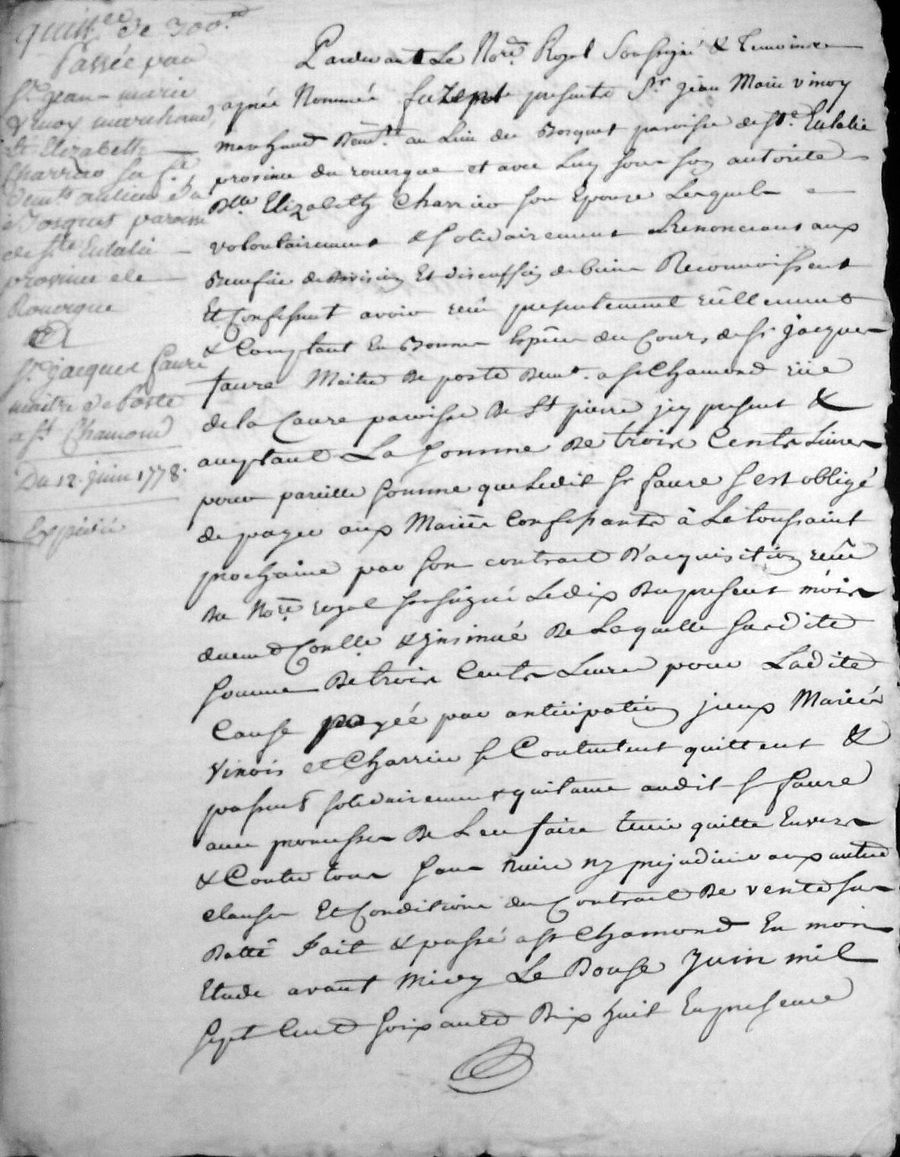 quitt.ce de 300.tt
Passée par
Sr. jean-marie
Vinoy marchand,
& Elizabeth
Charrier sa fe.
Demts au lieu du
Bosquet paroisse
de Ste Eulalie
province de
Rouergue
a
Sr. jacques faure
maitre de Poste
a St Chamond
Du 12. juin 1778.
Expédié
Pardevant Le Nore. Royal Soussigné & Temoins
apres Nommés furent presents Sr. jean Marie vinoy
marchand Demt. au Lieu du Bosquet paroisse de Ste. Eulalie
province du rouergue et avec Luy sous son autorité
Dlle Elizabeth Charrier son Epouse Lesquels
volontairement & solidairement & Renonciant aux
Benefice de division Et discussion de biens Reconnoissent
Et Confessent avoir reçû presentement réellement
& Comptant En Bonnes Espèces du Cours, de Sr jacques
faure Maitre De poste Demt. a St Chamond rüe
de la Caure paroisse De St pierre jcy present &
acceptant La somme De trois Cents Livres
pour pareille somme que Ledit Sr faure s'est obligé
de payer aux Mariés Confessants à La toussaint
prochaine par son contract D'acquisition reçû
Du Nore. royal soussigné Le dix Du present mois
duement Conllé & jnsinué De Laquelle susdite
somme De trois Cents Livres pour Ladite
Cause payée par anticipation jceux Mariés
Vinois et Charrier se Contentent quittent &
passent solidairement quittance audit Sr faure
avec promesse De L'en faire tenir quitte Envers
& Contre tous sans nuire ny prejudicier aux autres
clauses Et Conditions du Contract De vente sus
Datté Fait & passé a St Chamond En mon
Etude avant Midy Le Douse Juin mil
sept Cent soixante Dix huit En presence